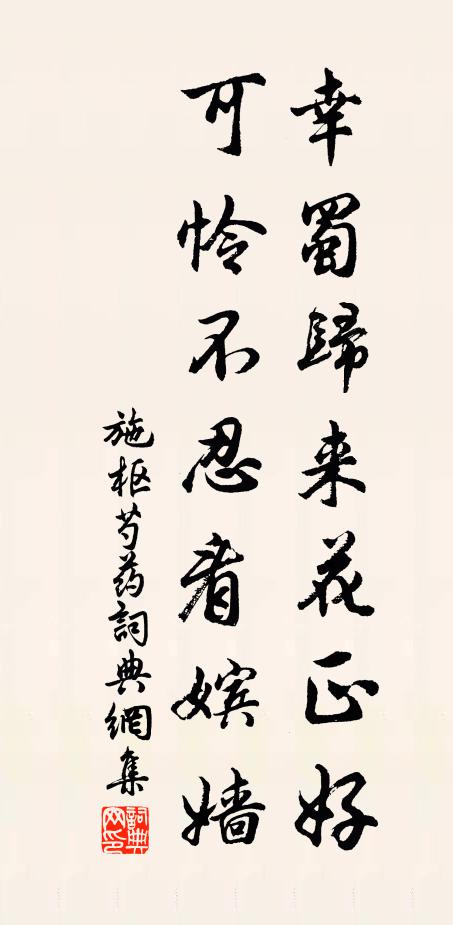 幸蜀歸来花正好
可怜不忍看嬪嬙
施枢芍药詞典網集
詞典网印